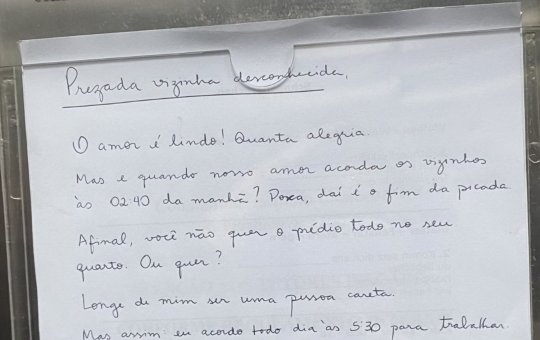 Prezada vizinha desconhecida,
O amor é lindo! Quanta alegria.
Mas e quando nosso amor acorda os vizinhos
às 02:40 da manhã? Poxa, daí é o fim da picada
Afinal, você não quer o prédio todo no seu
quarto. Ou quer?
Longe de mim ser uma pessoa careta.
Mas assim: eu acordo todo dia às 5:30 para trabalhar.